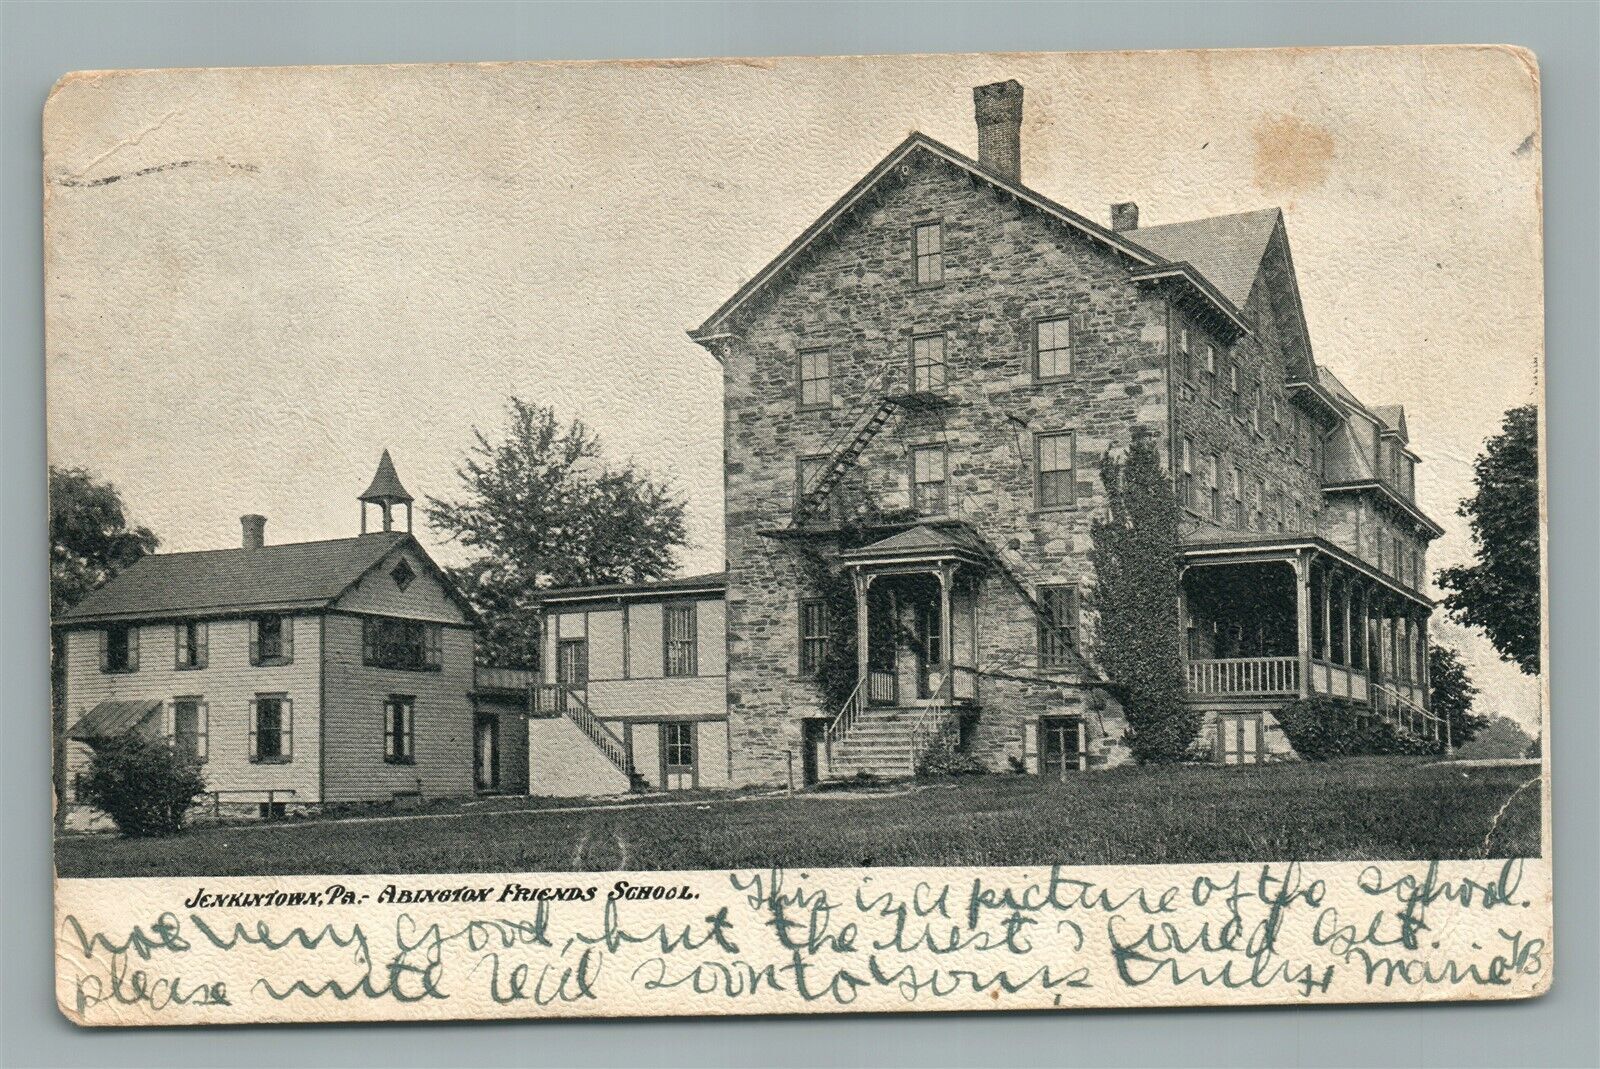 JENKINTOWN, PA.- ABINGTON FRIENDS SCHOOL. This is a picture of the school.
not very good, but the best I could get.
please write real soon to yours truly, Marie B